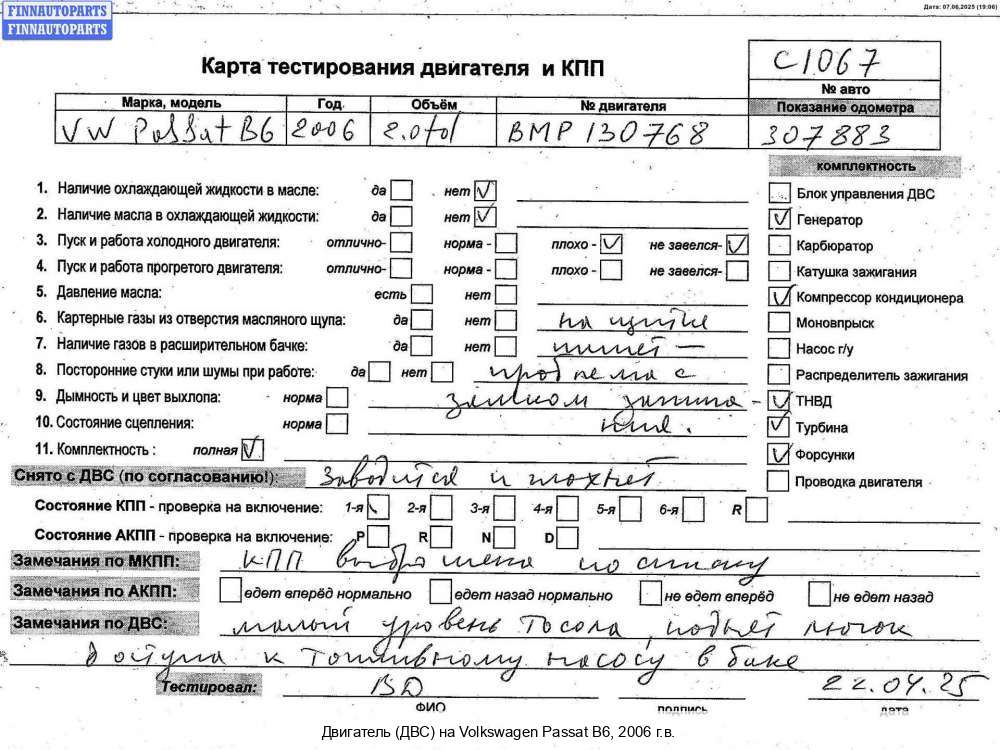 FINNAUTOPARTS
FINNAUTOPARTS
Дата: 07.06.2025 (19:06)
Карта тестирования двигателя и КПП
C1067
№ авто
Марка, модель Год Объём № двигателя Показание одометра
VW Passat B6 2006 2.0tdi BMP 130768 307883
комплектность
1. Наличие охлаждающей жидкости в масле: да нет Блок управления ДВС
2. Наличие масла в охлаждающей жидкости: да нет Генератор
3. Пуск и работа холодного двигателя: отлично- норма - плохо - не завелся- Карбюратор
4. Пуск и работа прогретого двигателя: отлично- норма - плохо - не завелся- Катушка зажигания
5. Давление масла: есть нет Компрессор кондиционера
6. Картерные газы из отверстия масляного щупа: да нет на щитке Моновпрыск
7. Наличие газов в расширительном бачке: да нет пишет — Насос г/у
8. Посторонние стуки или шумы при работе: да нет проблема с Распределитель зажигания
9. Дымность и цвет выхлопа: норма замком зажига- ТНВД
10. Состояние сцепления: норма ния. Турбина
11. Комплектность : полная Форсунки
Снято с ДВС (по согласованию!): Заводится и глохнет Проводка двигателя
Состояние КПП - проверка на включение: 1-я 2-я 3-я 4-я 5-я 6-я R
Состояние АКПП - проверка на включение: P R N D
Замечания по МКПП: КПП выброшена по стоку
Замечания по АКПП: едет вперёд нормально едет назад нормально не едет вперёд не едет назад
Замечания по ДВС: малый уровень Тосола, подъёт лючок
доступа к топливному насосу в баке
Тестировал: ВД 22.04.25
ФИО подпись дата
Двигатель (ДВС) на Volkswagen Passat B6, 2006 г.в.